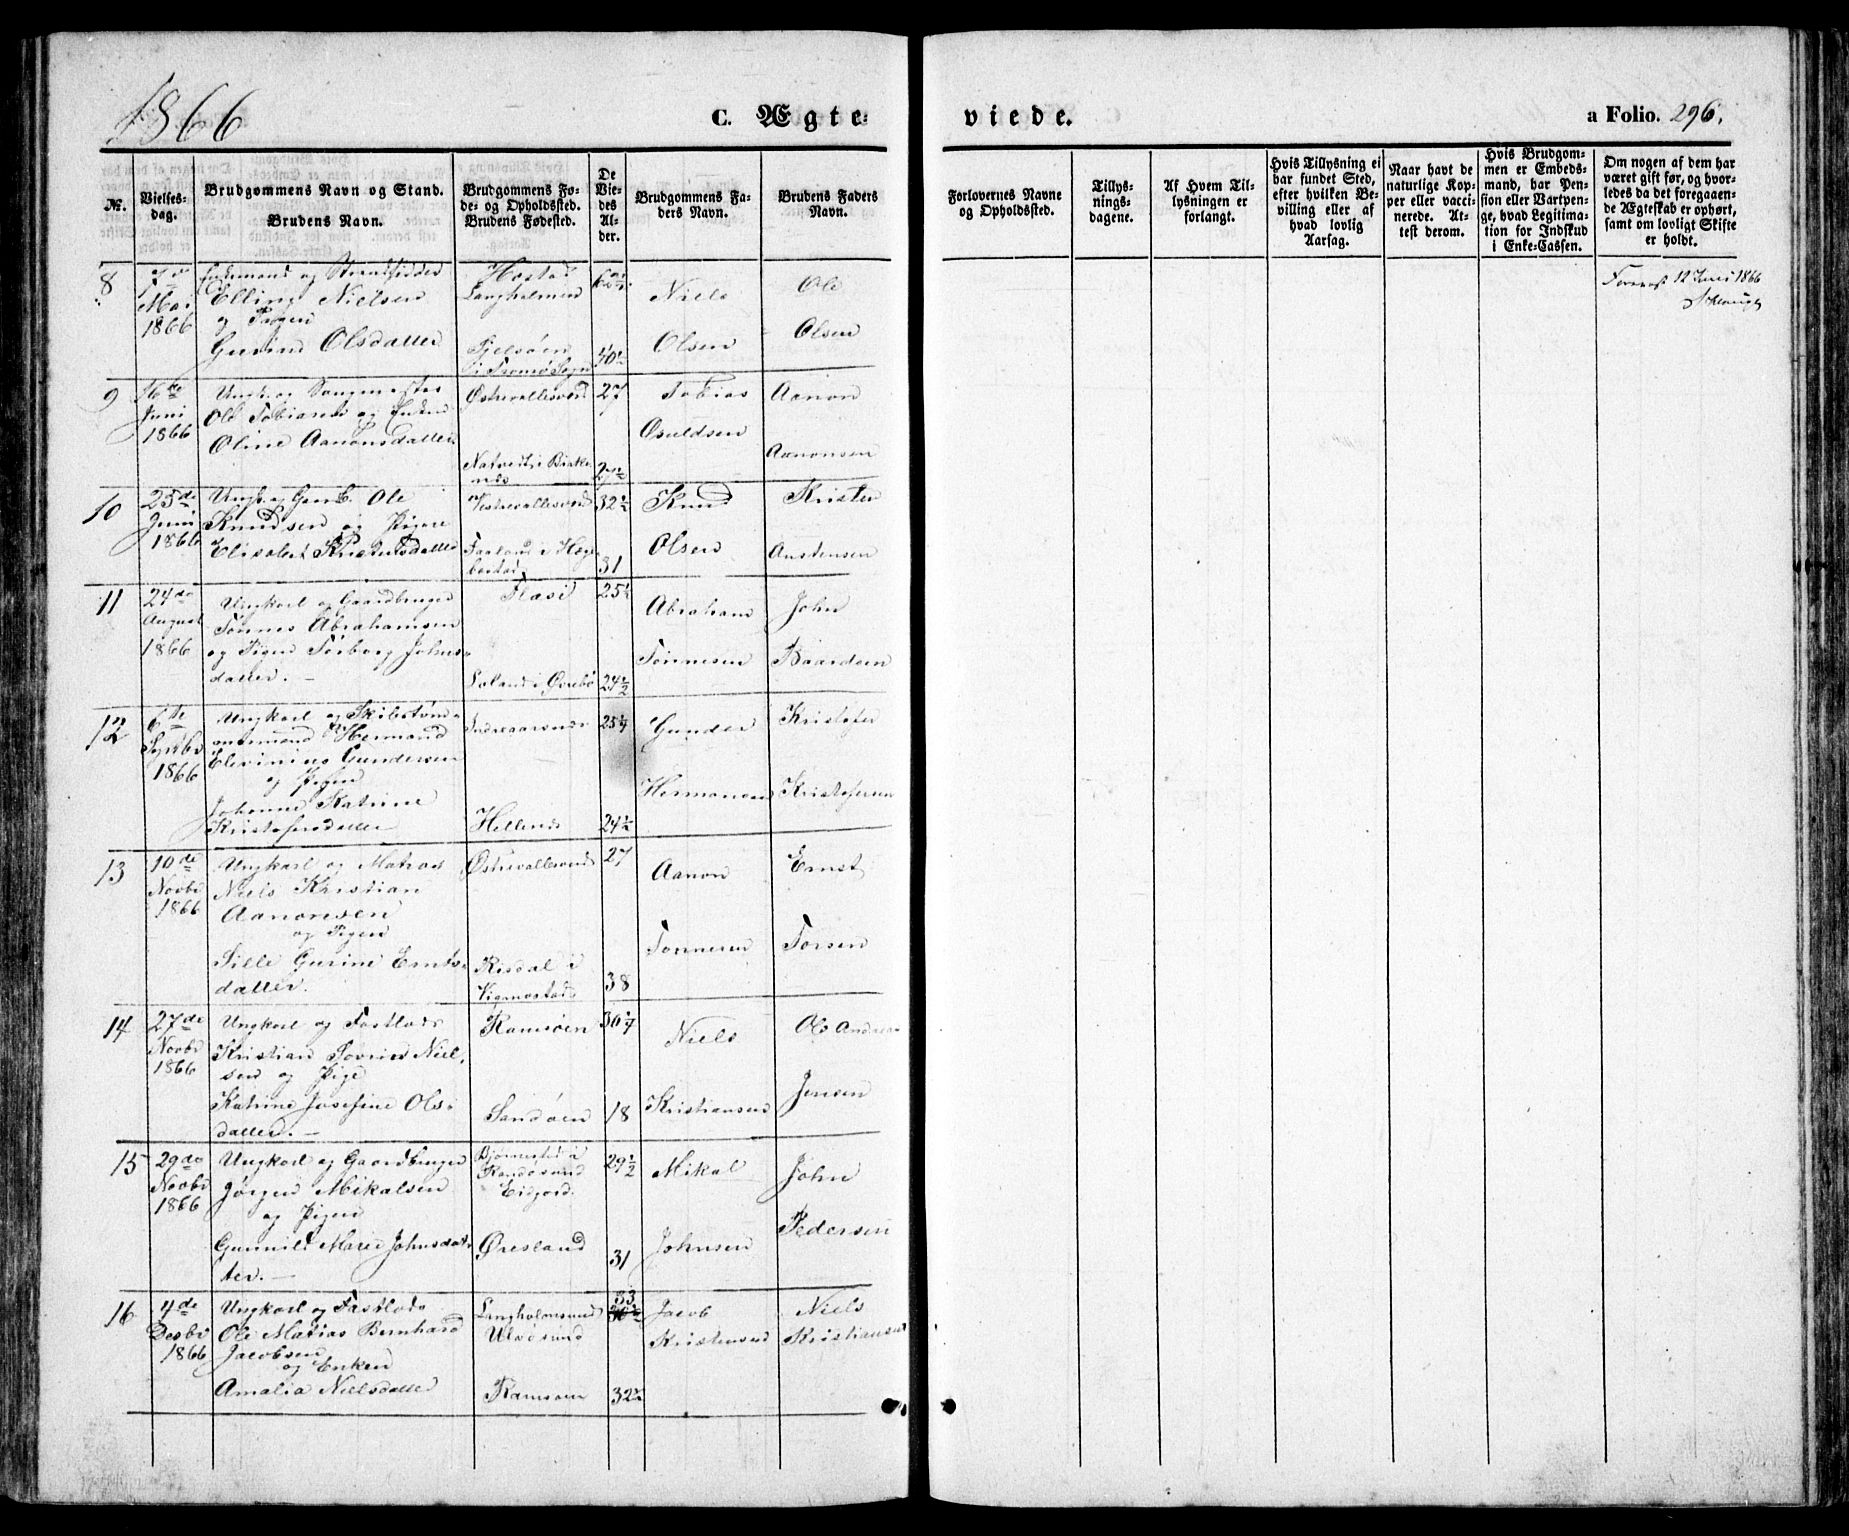 1866
C. Ægte-
viede.
a Folio. 296.
№.
Vielses-
dag.
Brudgommens Navn og Stand.
Brudens Navn.
Brudgommens Fø-
de- og Opholdssted.
Brudens Fødested.
De
Vie-
des
Al-
der.
Brudgommens Fa-
ders Navn.
Brudens Faders
Navn.
Forlovernes Navne
og Opholdssted.
Tillys-
nings-
dagene.
Af Hvem Til-
lysningen er
forlangt.
Hvis Tillysning ei
har fundet Sted,
efter hvilken Be-
villing eller af
hvad lovlig
Aarsag.
Naar havt de
naturlige Kop-
per eller vacci-
nerede. At-
test derom.
Hvis Brudgom-
men er Embeds-
mand, har Pen-
sion eller Vartpen-
ge, hvad Legitima-
tion for Indskud
i Enke-Cassen.
Om nogen af dem har
været gift før, og hvor-
ledes da det foregaaen-
de Ægteskab er ophørt,
samt om lovligt Skifte
er holdt.
8
Mai
1866
Enkemand og Strandsidder
Elling Nielsen
og Pigen
Gurine Olsdatter
Langholmen
i Tromø Sogn
40½
Niels
Olsen
Ole
Olsen
12 Juni 1866
9
16de
Juni
1866
Ungk. og
Ole Tobiasen og Enken
Oline Aanonsdatter
Østrevallesverd
Natvedt i Birke-
næs
27
27½
Tobias
Osuldsen
Aanon
Aanonsen
10
25de
Juni
1866
Ungk. og Gaardb. Ole
Knudsen og Pigen
Elisabet Kristensdatter
Vestrevallesverd
i Hæg-
bostad
32½
31
Knud
Olsen
Kristen
Anstensen
11
24de
August
1866
Ungkarl og Gaardbruger
Tønnes Abrahamsen
og Pigen Torborg Johns-
datter. —
Flasi
Loland i Øvrebø
25½
24½
Abraham
Tønnesen
John
Baardsen
12
6te
Septbr
1866
Ungkarl og Skibstøm-
mermand Hermand
Elevinius Gundersen
og Pigen
Johanne Katrine
Kristofersdatter
Indreaarsnes
Hellend
25¼
24½
Gunder
Hermansen
Kristofer
Kristofersen
13
10de
Novbr
1866
Ungkarl og Matros
Niels Kristian
Aanonsen
og Pigen
Sille Gurine Ernts-
datter.
Østrevallesverd
Risdal i
Vigmostad
27
38
Aanon
Tønnesen
Ernst
Torsen
14
27de
Novbr
1866
Ungkarl og Fastlods
Kristian Severin Niel-
sen og Pige
Katrine Josefine Ols-
datter. —
Ramsøen
Sandøen
30¼
18
Niels
Kristiansen
Ole Andreas
Jensen
15
29de
Novbr
1866
Ungkarl og Gaardbruger
Jørgen Mikalsen
og Pigen
Gunnild Marie Johnsdat-
ter. —
Bjørnestad i
Randøsund
Eidjord.
Øresland
29½
31
Mikal
Johnsen
John
Pedersen
16
4de
Decbr
1866
Ungkarl og Fastlods
Ole Matias Bernhard
Jacobsen
og Enken
Amalia Nielsdatter
Langholmsund
Ulvøsund
Ramsøen
33
32½
Jacob
Kristensen
Niels
Kristiansen